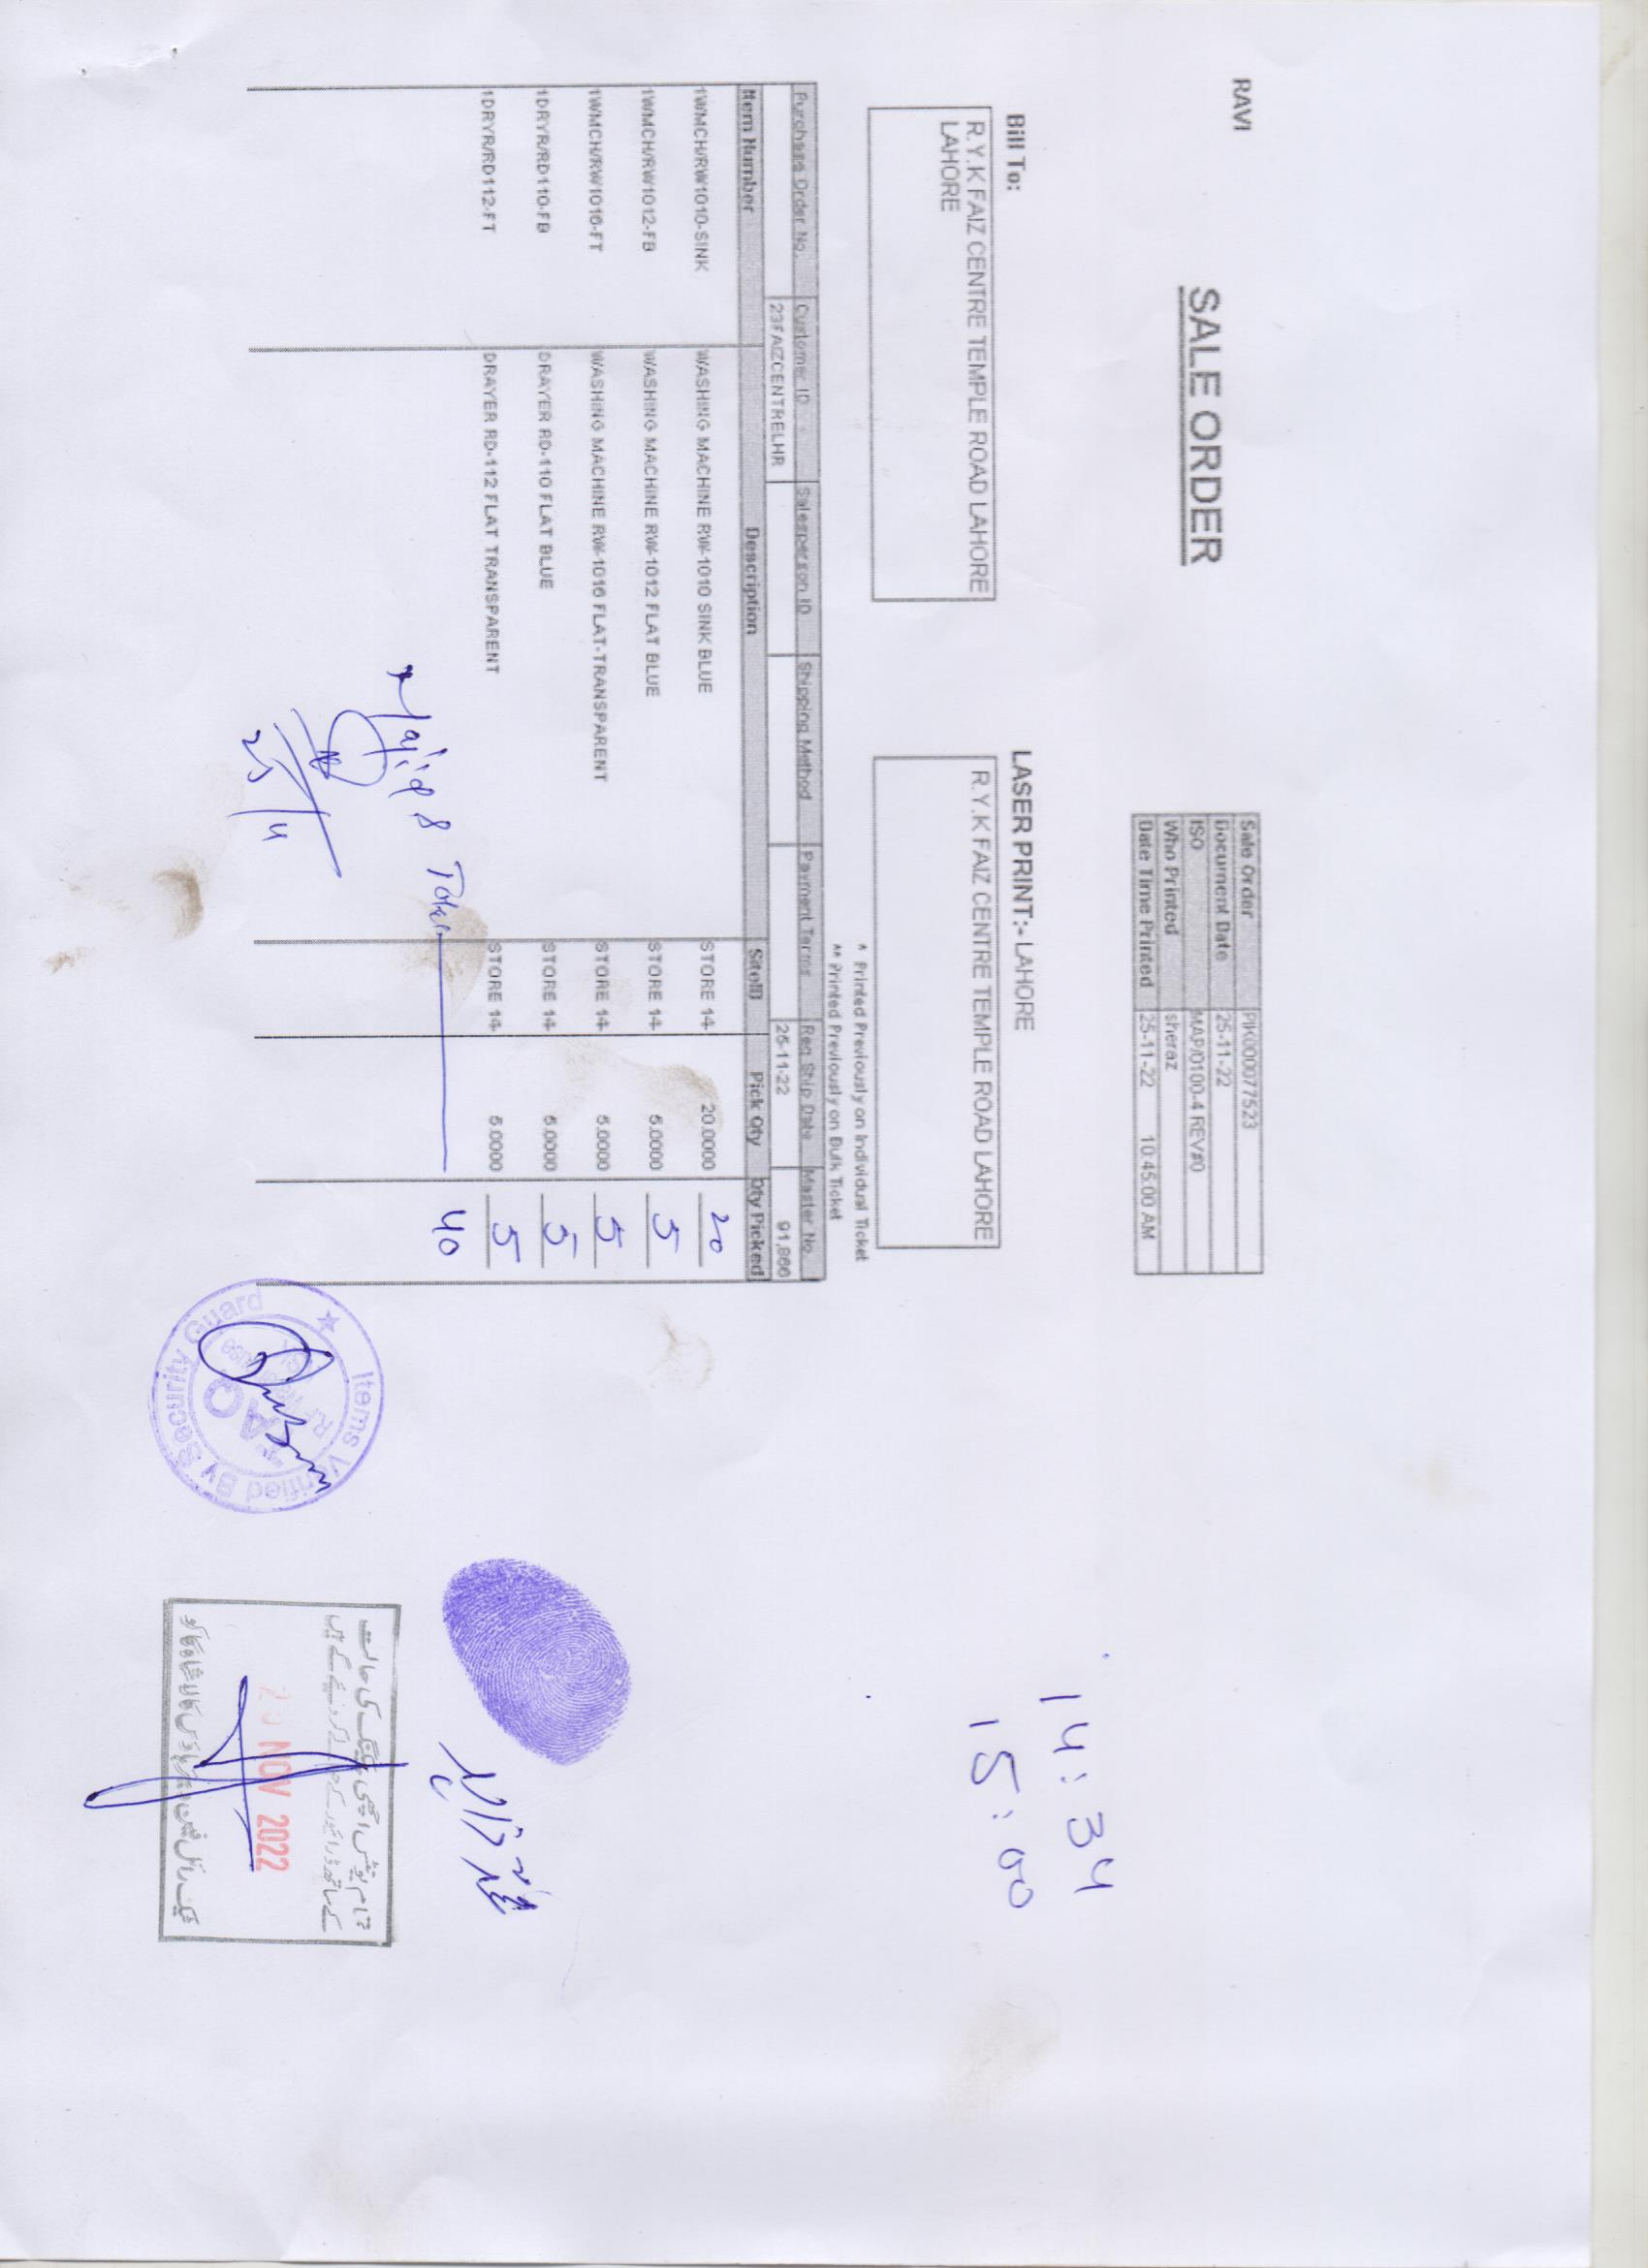 RAVI
SALE ORDER
Sale Order PIK000077523
Document Date 25-11-22
ISO MAP/0100-4 REV#0
Who Printed sheraz
Date Time Printed 25-11-22 10:45:00 AM
14:34
15:00
Bill To:
R.Y.K FAIZ CENTRE TEMPLE ROAD LAHORE
LAHORE
LASER PRINT:- LAHORE
R.Y.K FAIZ CENTRE TEMPLE ROAD LAHORE
* Printed Previously on Individual Ticket
** Printed Previously on Bulk Ticket
Purchase Order No. Customer ID Salesperson ID Shipping Method Payment Terms Req Ship Date Master No.
23FAIZCENTRELHR 25-11-22 91,866
Item Number Description SiteID Pick Qty Qty Picked
1WMCH/RW1010-SINK WASHING MACHINE RW-1010 SINK BLUE STORE 14- 20.0000 20
1WMCH/RW1012-FB WASHING MACHINE RW-1012 FLAT BLUE STORE 14- 5.0000 5
1WMCH/RW1016-FT WASHING MACHINE RW-1016 FLAT-TRANSPARENT STORE 14- 5.0000 5
1DRYR/RD110-FB DRAYER RD-110 FLAT BLUE STORE 14- 5.0000 5
1DRYR/RD112-FT DRAYER RD-112 FLAT TRANSPARENT STORE 14- 5.0000 5
Majid 40
25/11
Items Verified By Security Guard
محمد زاہد
تمام یونٹس اچھی پیکنگ کی حالت
کے ساتھ ڈرائیور کے حوالے کر دئیے گے ہیں
NOV 2022
ٹیک رائل فین ویئر ہاؤس کالا شاہ کاکو